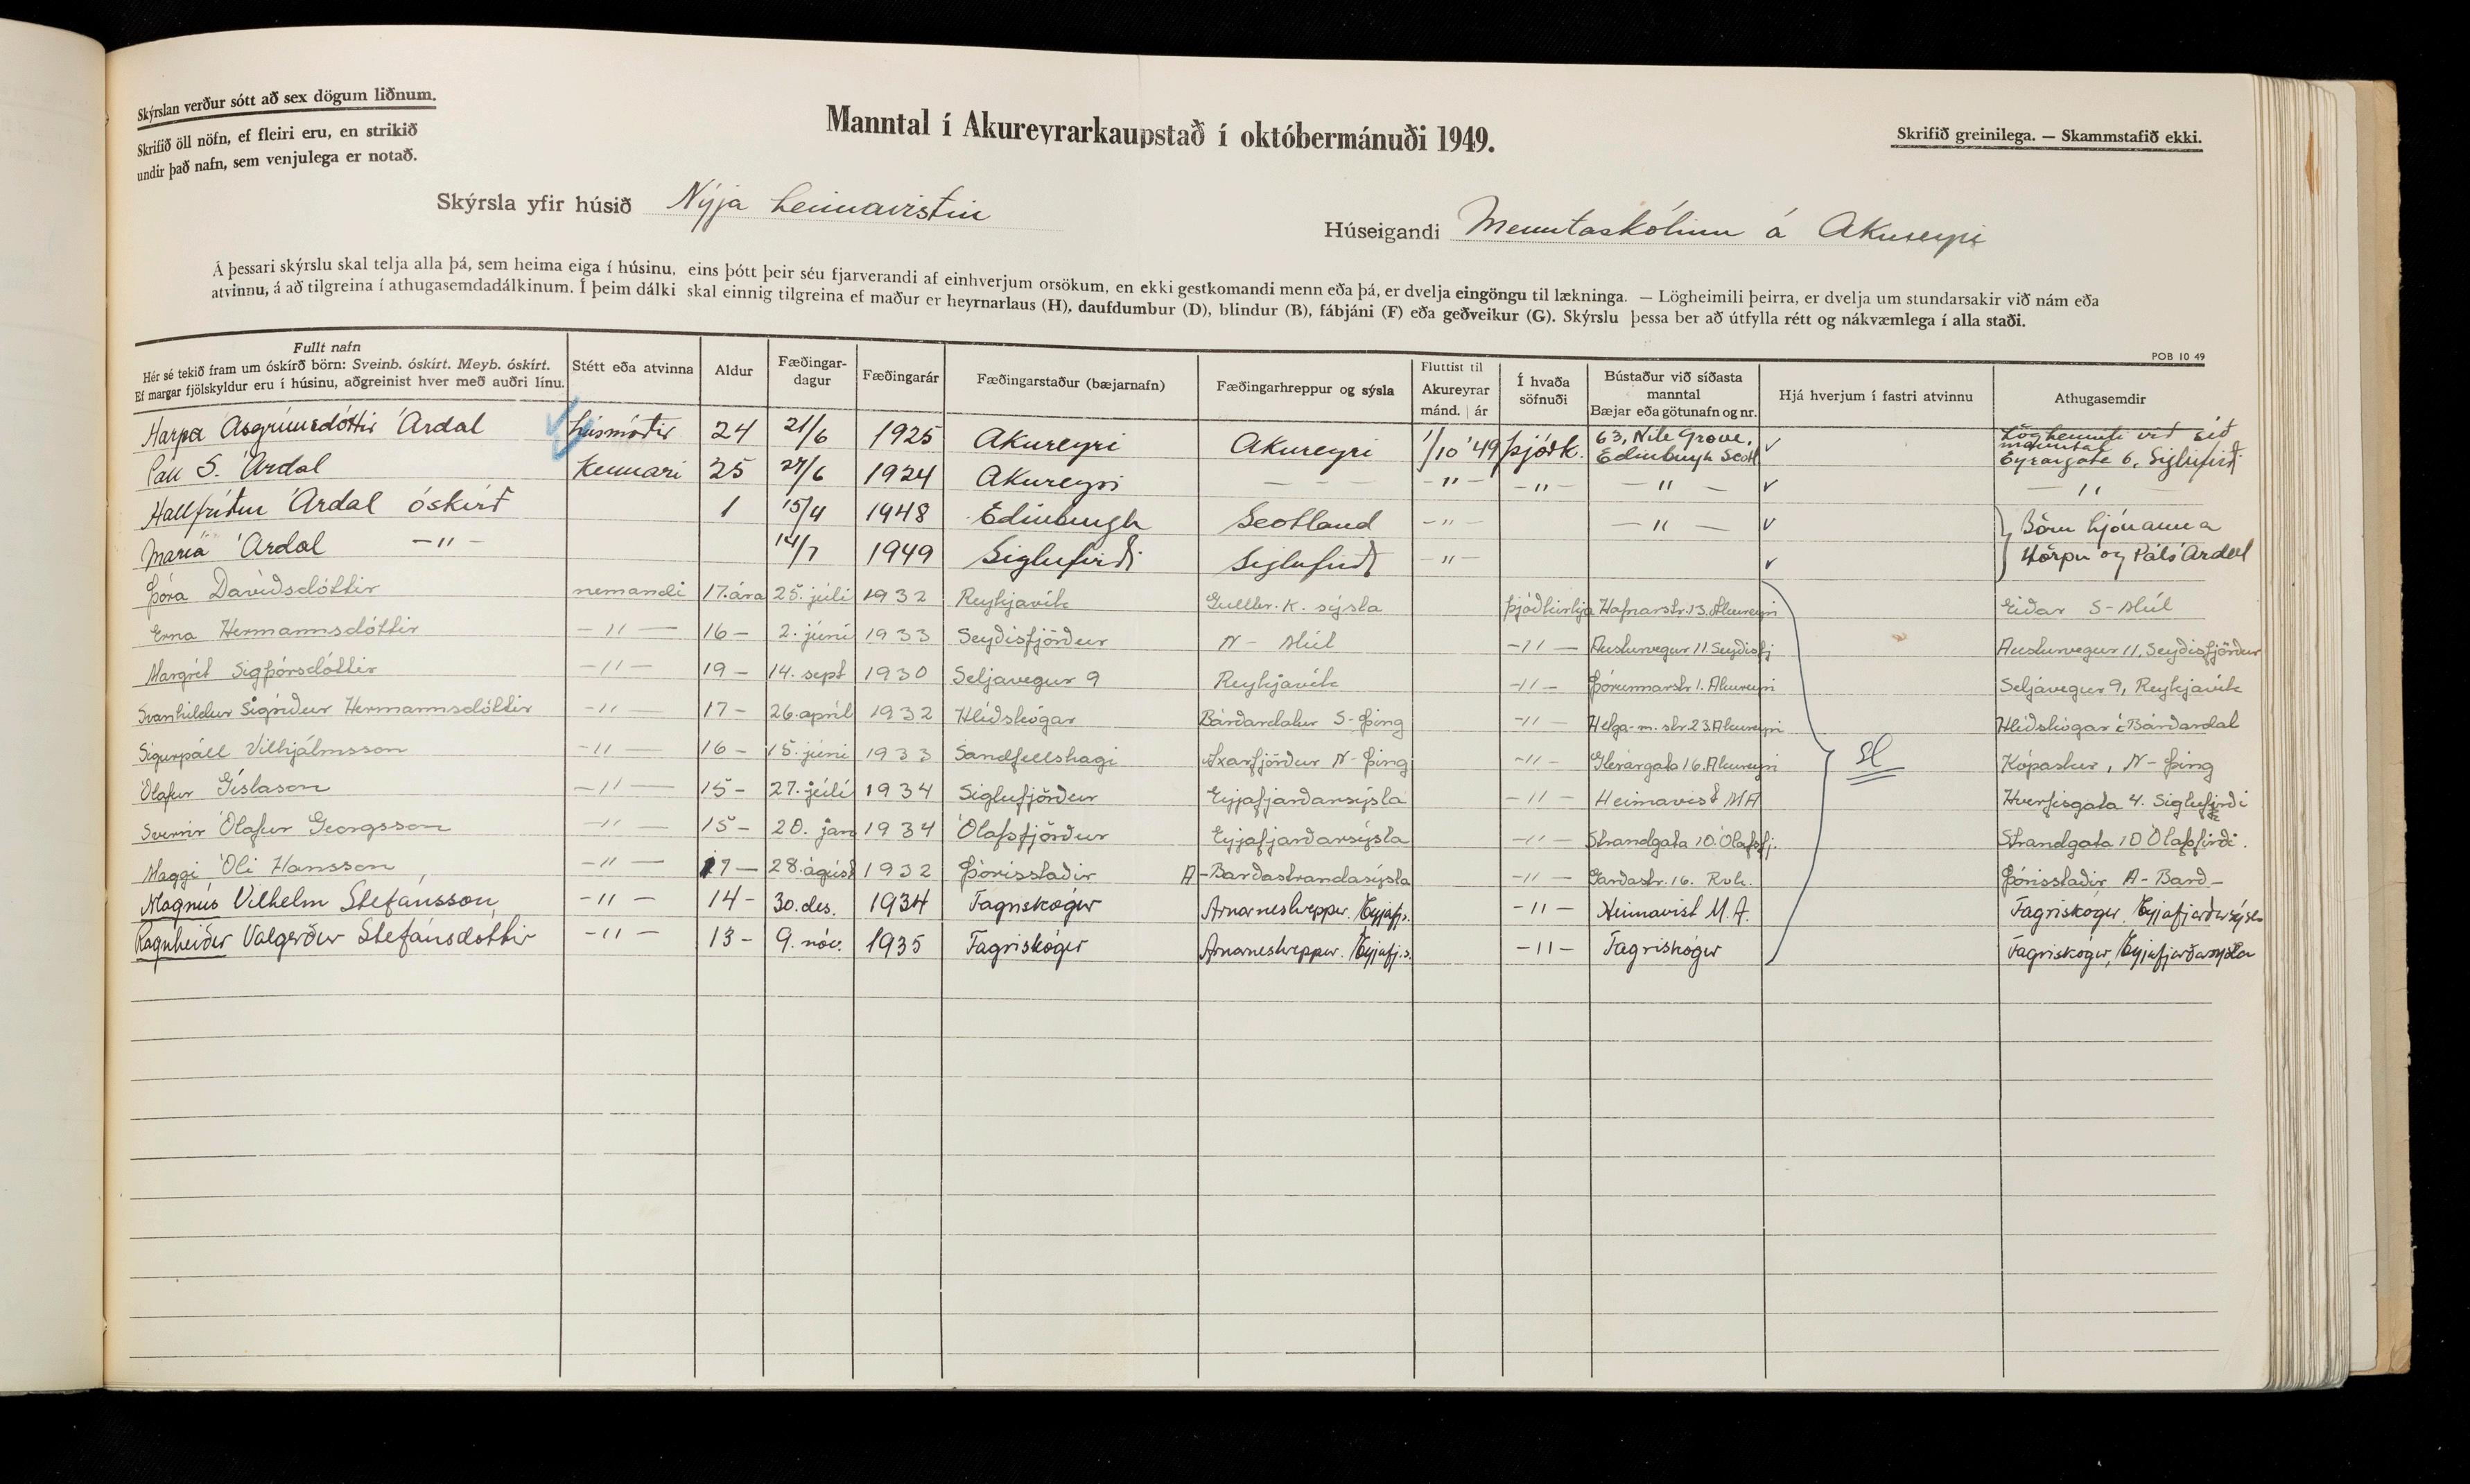 Skýrslan verður sótt að sex dögum liðnum.
Skrifið öll nöfn, ef fleiri eru, en strikið
undir það nafn, sem venjulega er notað.
Manntal í Akureyrarkaupstað í októbermánuði 1949.
Skrifið greinilega. — Skammstafið ekki.
Skýrsla yfir húsið Nýja heimavistin
Húseigandi Menntaskólinn á Akureyri
Á þessari skýrslu skal telja alla þá, sem heima eiga í húsinu, eins þótt þeir séu fjarverandi af einhverjum orsökum, en ekki gestkomandi menn eða þá, er dvelja eingöngu til lækninga. — Lögheimili þeirra, er dvelja um stundarsakir við nám eða
atvinnu, á að tilgreina í athugasemdadálkinum. Í þeim dálki skal einnig tilgreina ef maður er heyrnarlaus (H), daufdumbur (D), blindur (B), fábjáni (F) eða geðveikur (G). Skýrslu þessa ber að útfylla rétt og nákvæmlega í alla staði.
POB 10 49
Fullt nafn
Hér sé tekið fram um óskírð börn: Sveinb. óskírt. Meyb. óskírt.
Ef margar fjölskyldur eru í húsinu, aðgreinist hver með auðri línu.
Stétt eða atvinna
Aldur
Fæðingar-
dagur
Fæðingarár
Fæðingarstaður (bæjarnafn)
Fæðingarhreppur og sýsla
Fluttist til
Akureyrar
mánd. | ár
Í hvaða
söfnuði
Bústaður við síðasta
manntal
Bæjar eða götunafn og nr.
Hjá hverjum í fastri atvinnu
Athugasemdir
Harpa Ásgrímsdóttir Árdal húsmóðir 24 21/6 1925 Akureyri Akureyri 1/10 '49 þjóðk. 63, Nile Grove, Edinburgh Scotl ✓ Lögheimili við síð manntal Eyrargata 6, Siglufirði
Páll S. Árdal Kennari 25 27/6 1924 Akureyri — — — — " — — " — — " — ✓ — " —
Hallfríður Árdal óskírð 1 15/4 1948 Edinburgh Scotland — " — — " — ✓ Börn hjónanna
María Árdal — " — 14/7 1949 Siglufirði Siglufirði — " — ✓ Hörpu og Páls Árdal
Þóra Davíðsdóttir nemandi 17. ára 25. júlí 1932 Reykjavík Gullbr. K. sýsla Þjóðkirkja Hafnarstr. 13. Akureyri Eiðar S-Múl
Erna Hermannsdóttir — " — 16 — 2. júní 1933 Seyðisfjörður N - Múl — " — Austurvegur 11 Seyðisfj Austurvegur 11, Seyðisfjörður
Margrét Sigþórsdóttir — " — 19 — 14. sept 1930 Seljavegur 9 Reykjavík — " — Þórunnarstr 1. Akureyri Seljavegur 9, Reykjavík
Svanhildur Sigríður Hermannsdóttir — " — 17 — 26. apríl 1932 Hlíðskógar Bárðardalur S-Þing — " — Helga-m. str. 23. Akureyri Hlíðskógar í Bárðardal
Sigurpáll Vilhjálmsson — " — 16 — 15. júní 1933 Sandfellshagi Axarfjörður N-Þing — " — Glerárgata 16. Akureyri Sl Kópasker, N-Þing
Ólafur Gíslason — " — 15 — 27. júlí 1934 Siglufjörður Eyjafjarðarsýsla — " — Heimavist MA Hverfisgata 4. Siglufirði
Sverrir Ólafur Georgsson — " — 15 — 20. jan 1934 Ólafsfjörður Eyjafjarðarsýsla — " — Strandgata 10. Ólafsfj. Strandgata 10 Ólafsfirði.
Maggi Óli Hansson — " — 17 — 28. ágúst 1932 Þórisstaðir A-Barðastrandasýsla — " — Garðastr. 16. Rvk. Þórisstaðir A-Barð—
Magnús Vilhelm Stefánsson — " — 14 - 30. des. 1934 Fagriskógur Arnarneshreppur, Eyjafj.s. — " — Heimavist M.A. Fagriskógur, Eyjafjarðarsýsla
Ragnheiður Valgerður Stefánsdóttir — " — 13 - 9. nóv. 1935 Fagriskógur Arnarneshreppur. Eyjafj.s. — " — Fagriskógur Fagriskógur, Eyjafjarðarsýsla